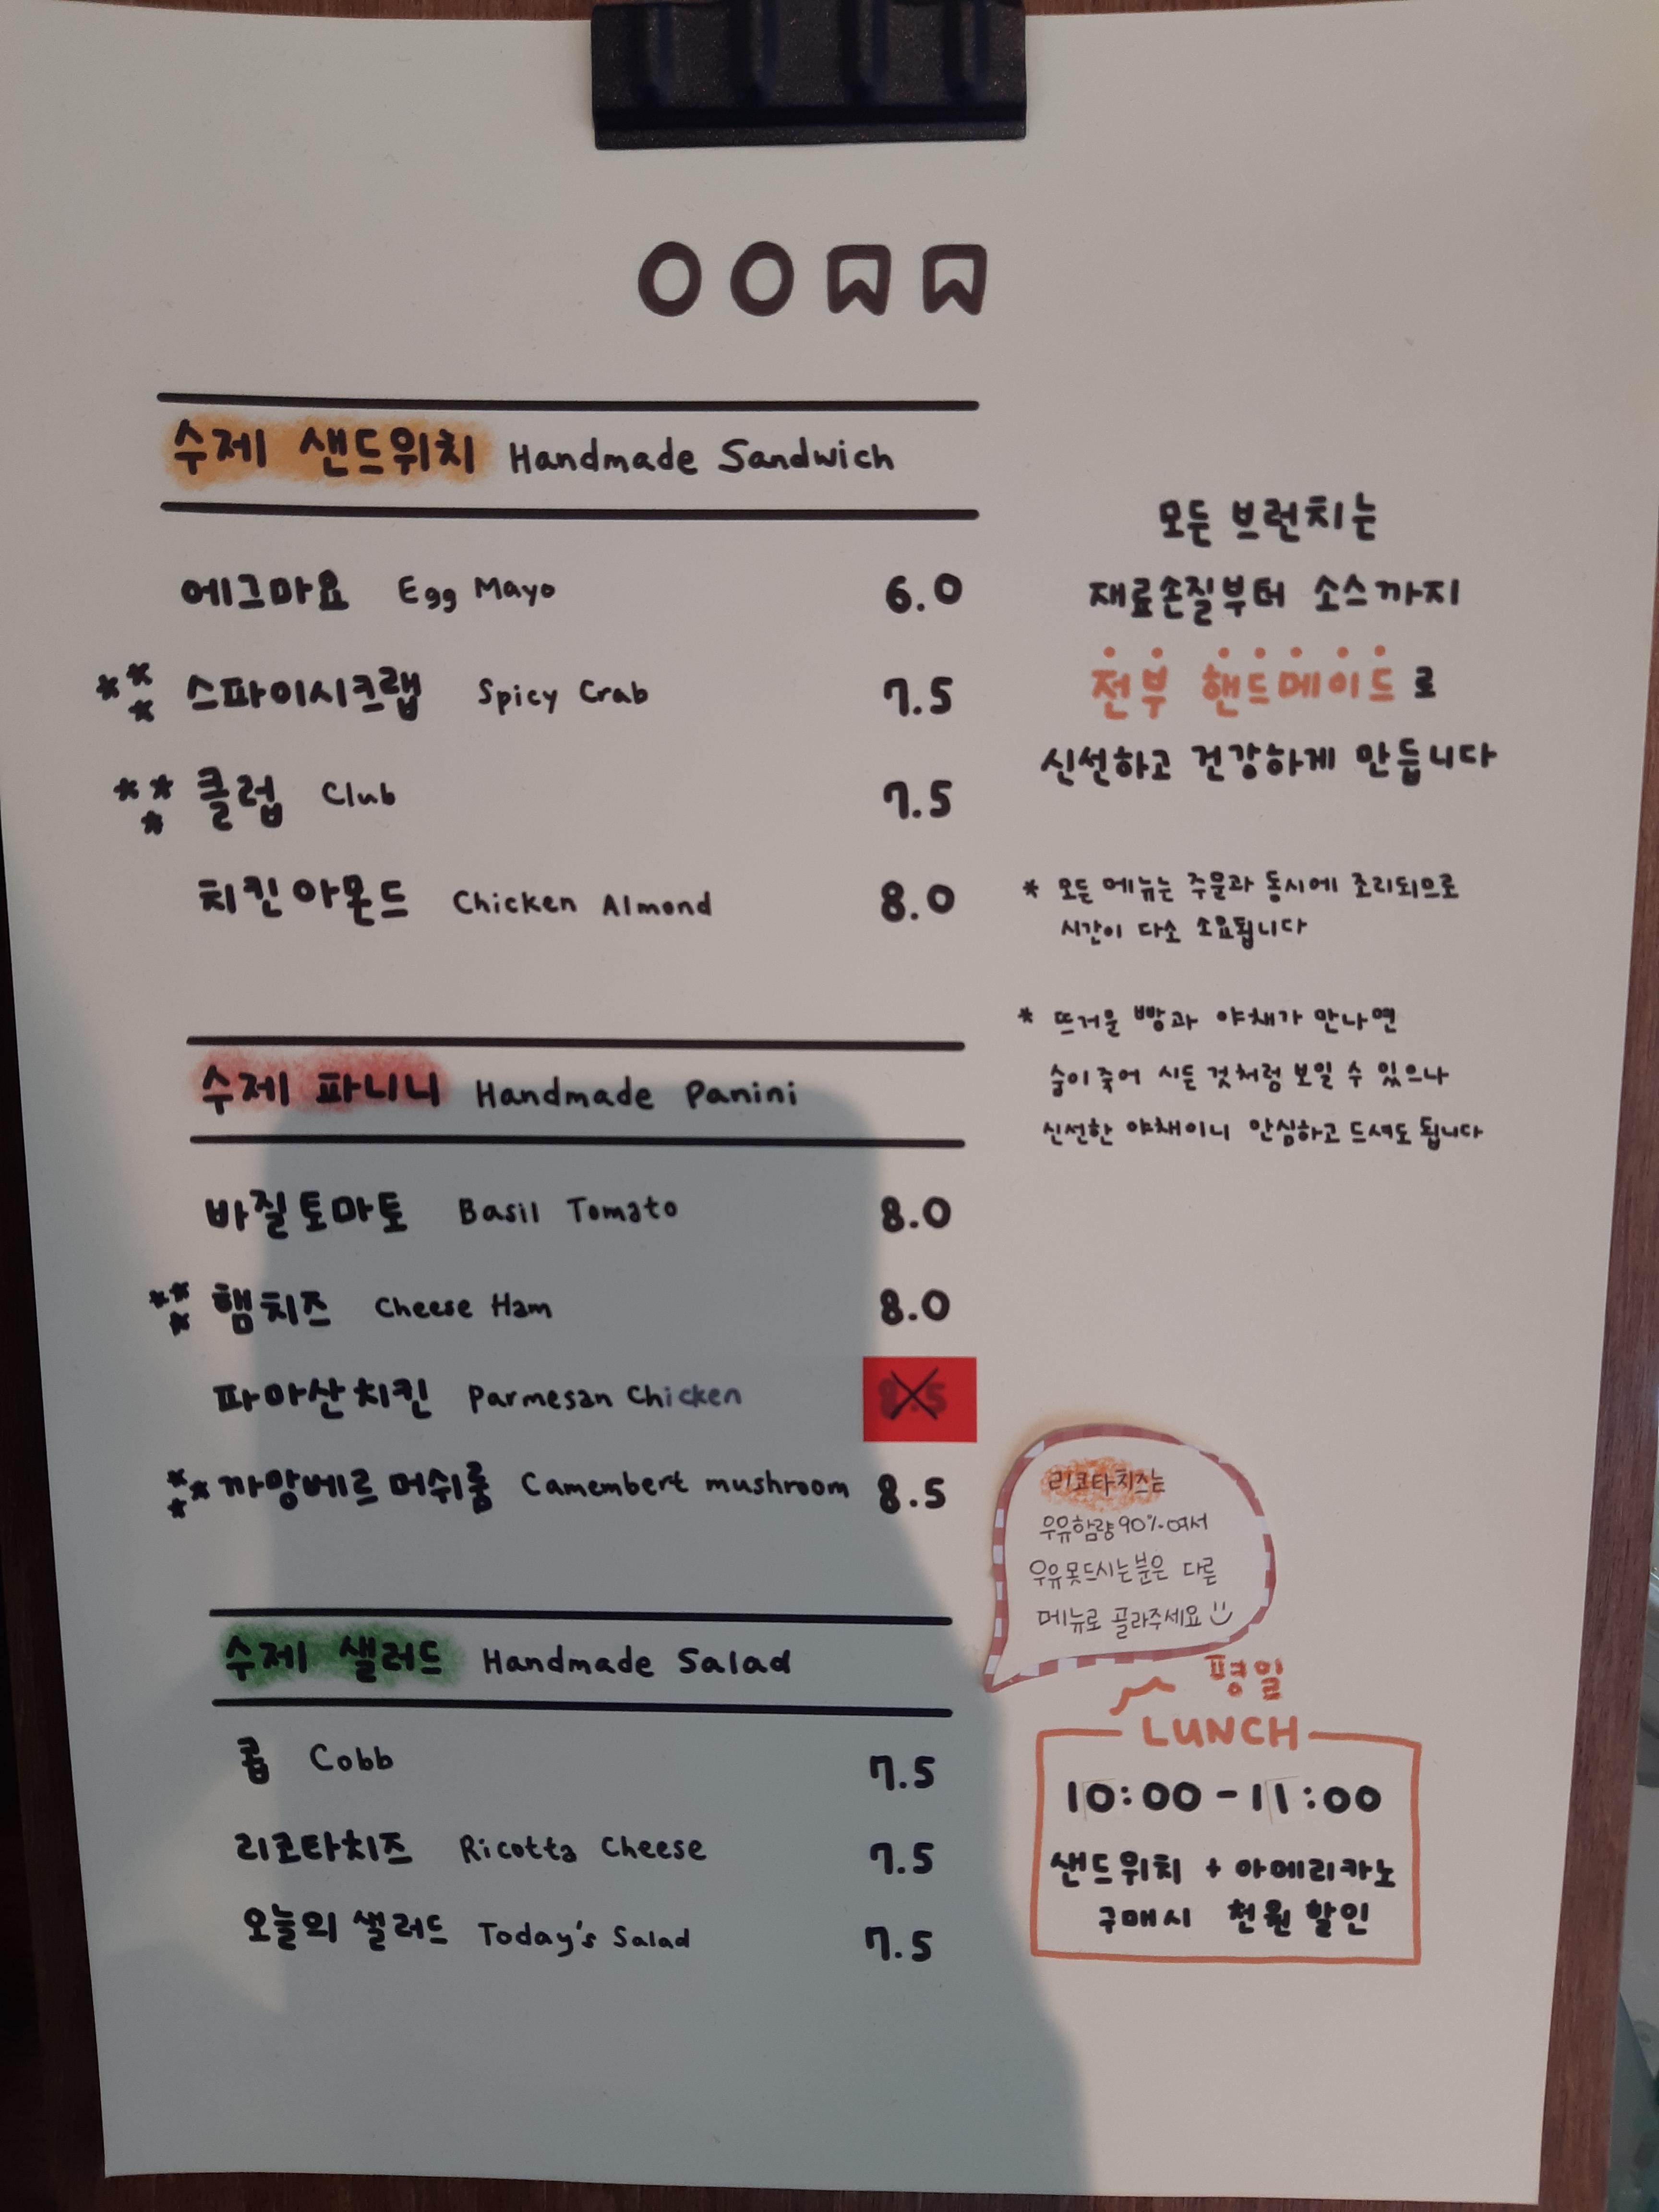 ㅇㅇㅁㅁ
수제 샌드위치 Handmade Sandwich
에그마요 Egg Mayo 6.0
** * 스파이시크랩 Spicy Crab 7.5
** * 클럽 Club 7.5
치킨아몬드 Chicken Almond 8.0
수제 파니니 Handmade Panini
바질토마토 Basil Tomato 8.0
** * 햄치즈 Cheese Ham 8.0
파마산치킨 Parmesan Chicken 8.5
*** 까망베르 머쉬룸 Camembert mushroom 8.5
수제 샐러드 Handmade Salad
콥 Cobb 7.5
리코타치즈 Ricotta Cheese 7.5
오늘의 샐러드 Today's Salad 7.5
모든 브런치는
재료손질부터 소스까지
전부 핸드메이드로
신선하고 건강하게 만듭니다
* 모든 메뉴는 주문과 동시에 조리되므로
시간이 다소 소요됩니다
* 뜨거운 빵과 야채가 만나면
숨이죽어 시든 것처럼 보일 수 있으나
신선한 야채이니 안심하고 드셔도 됩니다
리코타치즈는
우유함량90%여서
우유못드시는분은 다른
메뉴로 골라주세요
평일
LUNCH
10:00-11:00
샌드위치 + 아메리카노
구매시 천원 할인